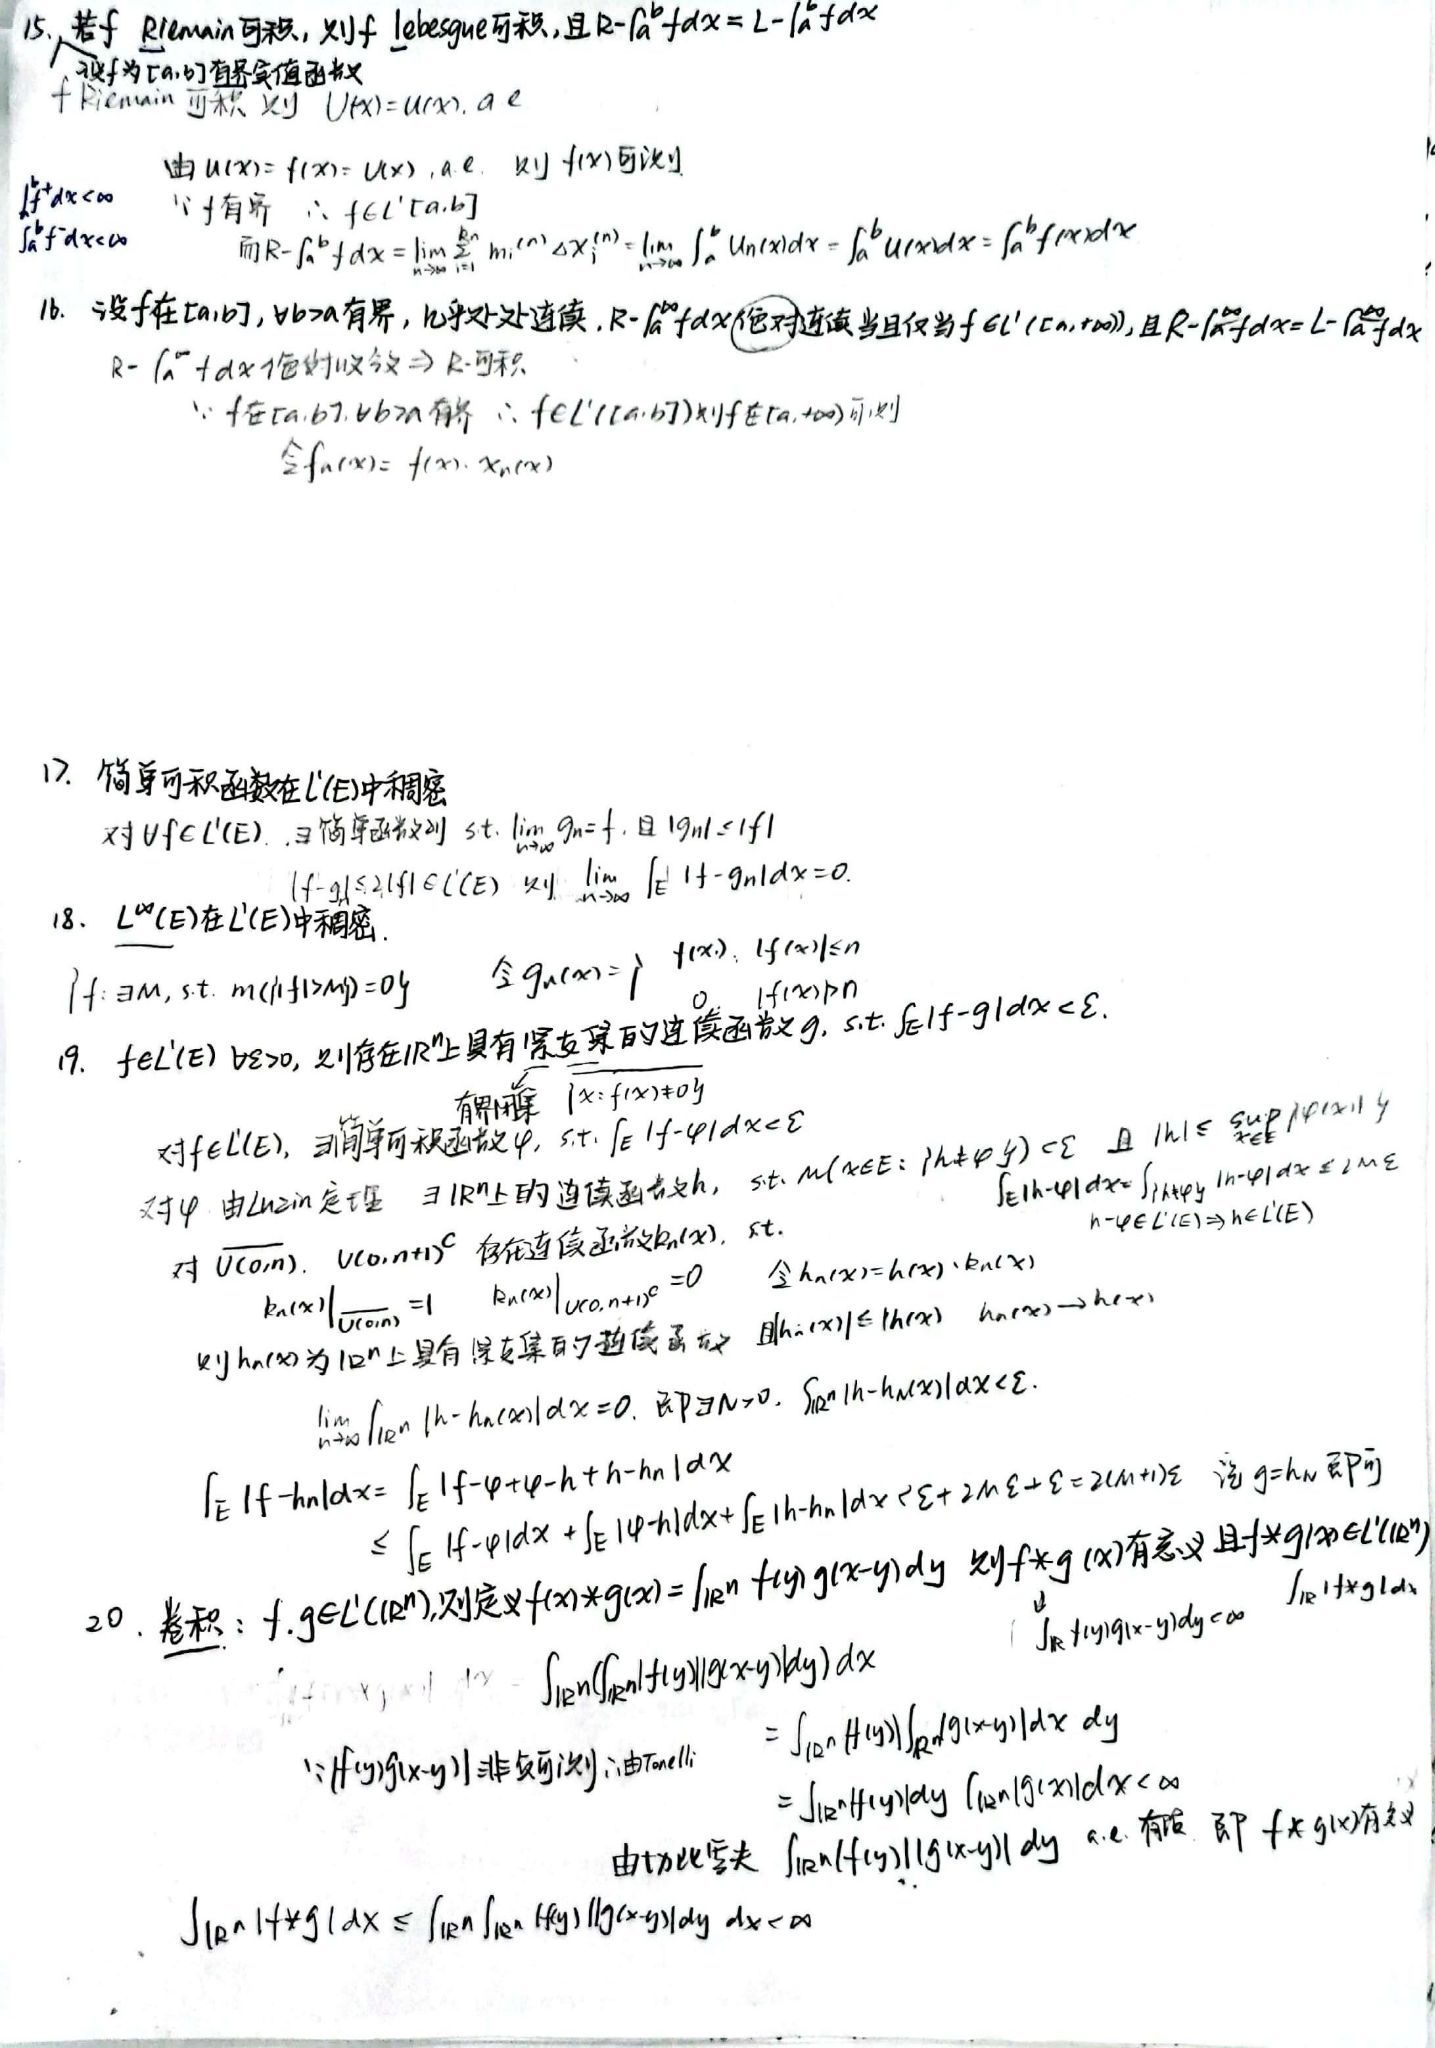 15. 若f Riemain可积, 则f lebesgue可积, 且R-∫ₐᵇfdx = L-∫ₐᵇfdx
设f为[a,b]有界实值函数
f Riemain 可积 则 U(x)=u(x), a e
由u(x)=f(x)=U(x), a.e. 则 f(x)可测
∫ₐᵇf⁺dx<∞
∵f有界 ∴ f∈L'[a,b]
∫ₐᵇf⁻dx<∞
而R-∫ₐᵇfdx = lim_{n→∞} Σ_{i=1}^{kn} mᵢ⁽ⁿ⁾Δxᵢ⁽ⁿ⁾ = lim_{n→∞} ∫ₐᵇ Un(x)dx = ∫ₐᵇu(x)dx = ∫ₐᵇf(x)dx
16. 设f在[a,b], ∀b>a有界, 几乎处处连续, R-∫ₐ^∞fdx绝对连续当且仅当f∈L'([a,+∞)), 且R-∫ₐ^∞fdx = L-∫ₐ^∞fdx
R-∫ₐ^∞fdx绝对收敛⇒R-可积
∵f在[a,b], ∀b>a有界 ∴ f∈L'([a,b])则f在[a,+∞)可测
令fn(x)=f(x)·xn(x)
17. 简单可积函数在L'(E)中稠密
对∀f∈L'(E). ∃简单函数列 s.t. lim_{n→∞} gn=f. 且|gn|≤|f|
|f-gn|≤2|f|∈L'(E) 则 lim_{n→∞} ∫_E |f-gn|dx=0.
18. L^∞(E)在L'(E)中稠密.
{f:∃M, s.t. m({|f|>M})=0} 令gn(x)={ f(x), |f(x)|≤n
0. |f(x)|>n
19. f∈L'(E) ∀ε>0, 则存在ℝⁿ上具有紧支集的连续函数g, s.t. ∫_E|f-g|dx<ε.
有界闭集 {x:f(x)≠0}
对f∈L'(E), ∃简单可积函数φ, s.t. ∫_E |f-φ|dx<ε
对φ 由Luzin定理 ∃ℝⁿ上的连续函数h, s.t. m(x∈E: {h≠φ})<ε 且 |h|≤ sup_{x∈E} |φ(x)|}
∫_E|h-φ|dx=∫_{{h≠φ}} |h-φ|dx≤2Mε
h-φ∈L'(E)⇒h∈L'(E)
对 U(0,n), U(0,n+1)^c 存在连续函数kn(x), s.t.
kn(x)|_{U(0,n)}=1 kn(x)|_{U(0,n+1)^c}=0 令hn(x)=h(x)·kn(x)
则hn(x)为ℝⁿ上具有紧支集的连续函数 且|hn(x)|≤|h(x) hn(x)→h(x)
lim_{n→∞} ∫_{ℝⁿ} |h-hn(x)|dx=0. 即∃N>0, ∫_{ℝⁿ}|h-hN(x)|dx<ε.
∫_E |f-hn|dx = ∫_E |f-φ+φ-h+h-hn|dx
≤ ∫_E |f-φ|dx + ∫_E |φ-h|dx + ∫_E |h-hn|dx < ε+2Mε+ε=2(M+1)ε 记g=hN即可
20. 卷积: f.g∈L'(ℝⁿ), 则定义f(x)*g(x)=∫_{ℝⁿ} f(y)g(x-y)dy 则f*g(x)有意义 且f*g(x)∈L'(ℝⁿ)
⇓ ∫_ℝ f(y)g(x-y)dy<∞ ∫_ℝ|f*g|dx
∫_{ℝⁿ}(∫_{ℝⁿ}|f(y)||g(x-y)|dy)dx
∵|f(y)g(x-y)|非负可测 ∴由Tonelli = ∫_{ℝⁿ}|f(y)|∫_{ℝⁿ}|g(x-y)|dx dy
= ∫_{ℝⁿ}|f(y)|dy ∫_{ℝⁿ}|g(x)|dx<∞
∫_{ℝⁿ}|f(y)||g(x-y)|dy a.e. 有限 即 f*g(x)有意义
∫_{ℝⁿ}|f*g|dx ≤ ∫_{ℝⁿ}∫_{ℝⁿ}|f(y)||g(x-y)|dy dx<∞